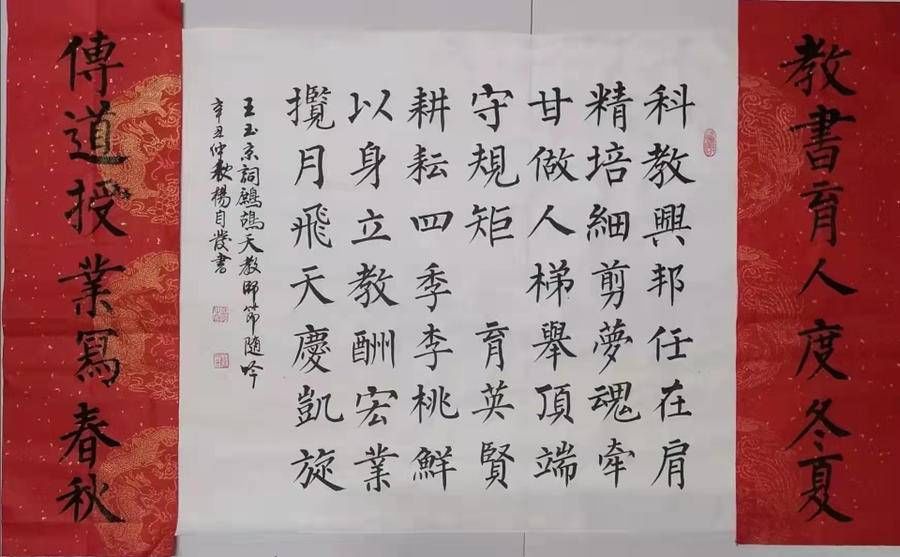 教書育人度冬夏
科教興邦任在肩
精培細剪夢魂牽
甘做人梯舉頂端
守規矩 育英賢
耕耘四季李桃鮮
以身立教酬宏業
攬月飛天慶凱旋
王玉京詞鷓鴣天教師節隨吟
辛丑仲秋楊自發書
傳道授業寫春秋